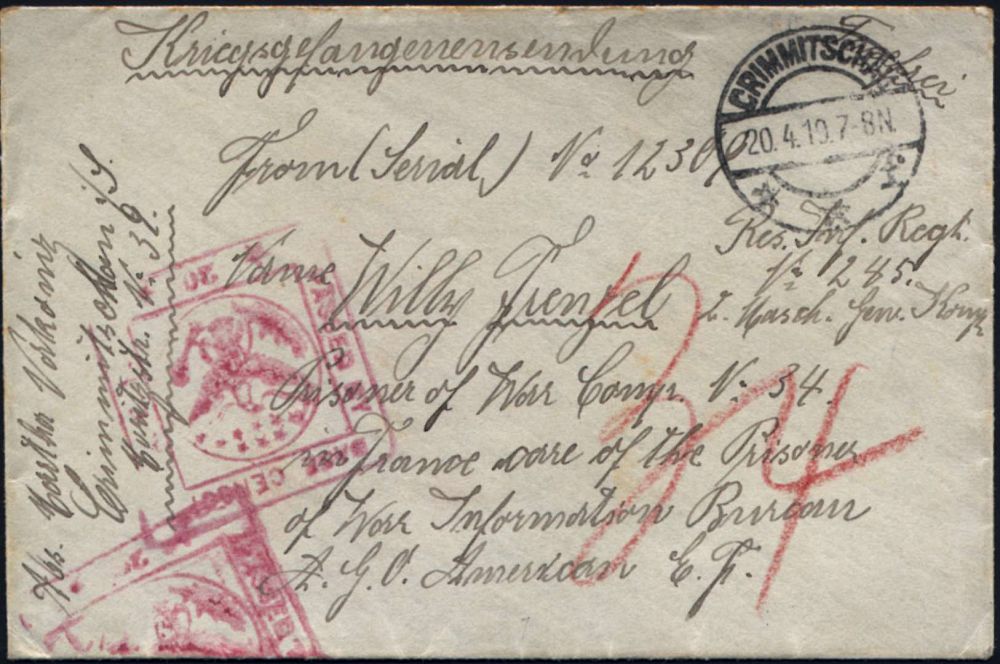 Kriegsgefangenensendung
CRIMMITSCHAU
20.4.19.7-8N.
From (Serial) No 1230
Res. Inf. Regt.
No 245.
2. Masch. Gew. Komp.
Name Willy Frenzel
Prisoner of War Comp. No 34.
in France care of the Prisoner
of War Information Bureau
A. G. O. American E. F.
34
Abs. Martha
Crimmitschau i/S.
No 32.
PASSED BY
CENSOR